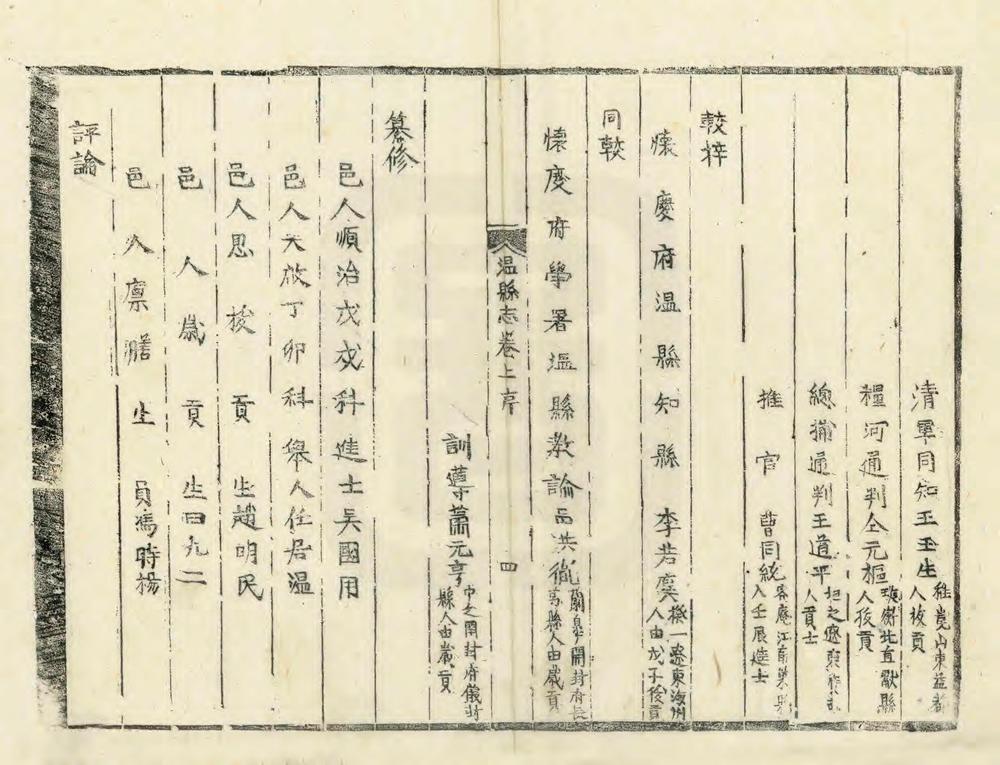 清軍同知王玉生 稚崑山東益都人拔貢
糧河通判仝元樞 璇衡北直獻縣人俊貢
總捕通判王道平 坦之遼東人貢士
推官 曹同統 容庵江南人壬辰進士
較梓
懷慶府溫縣知縣 李若廙 機一遼東海州人由戊子俊貢
同較
懷慶府學署溫縣教諭 洪 開封府長葛縣人由歲貢
訓導蕭元亨 中之開封府儀封縣人由歲貢
溫縣志卷上序 四
纂修
邑人順治戊戌科進士吳國用
邑人天啟丁卯科舉人任居溫
邑人恩拔貢生趙明民
邑人歲貢生田九二
邑人廩膳生員馮時楊
評論